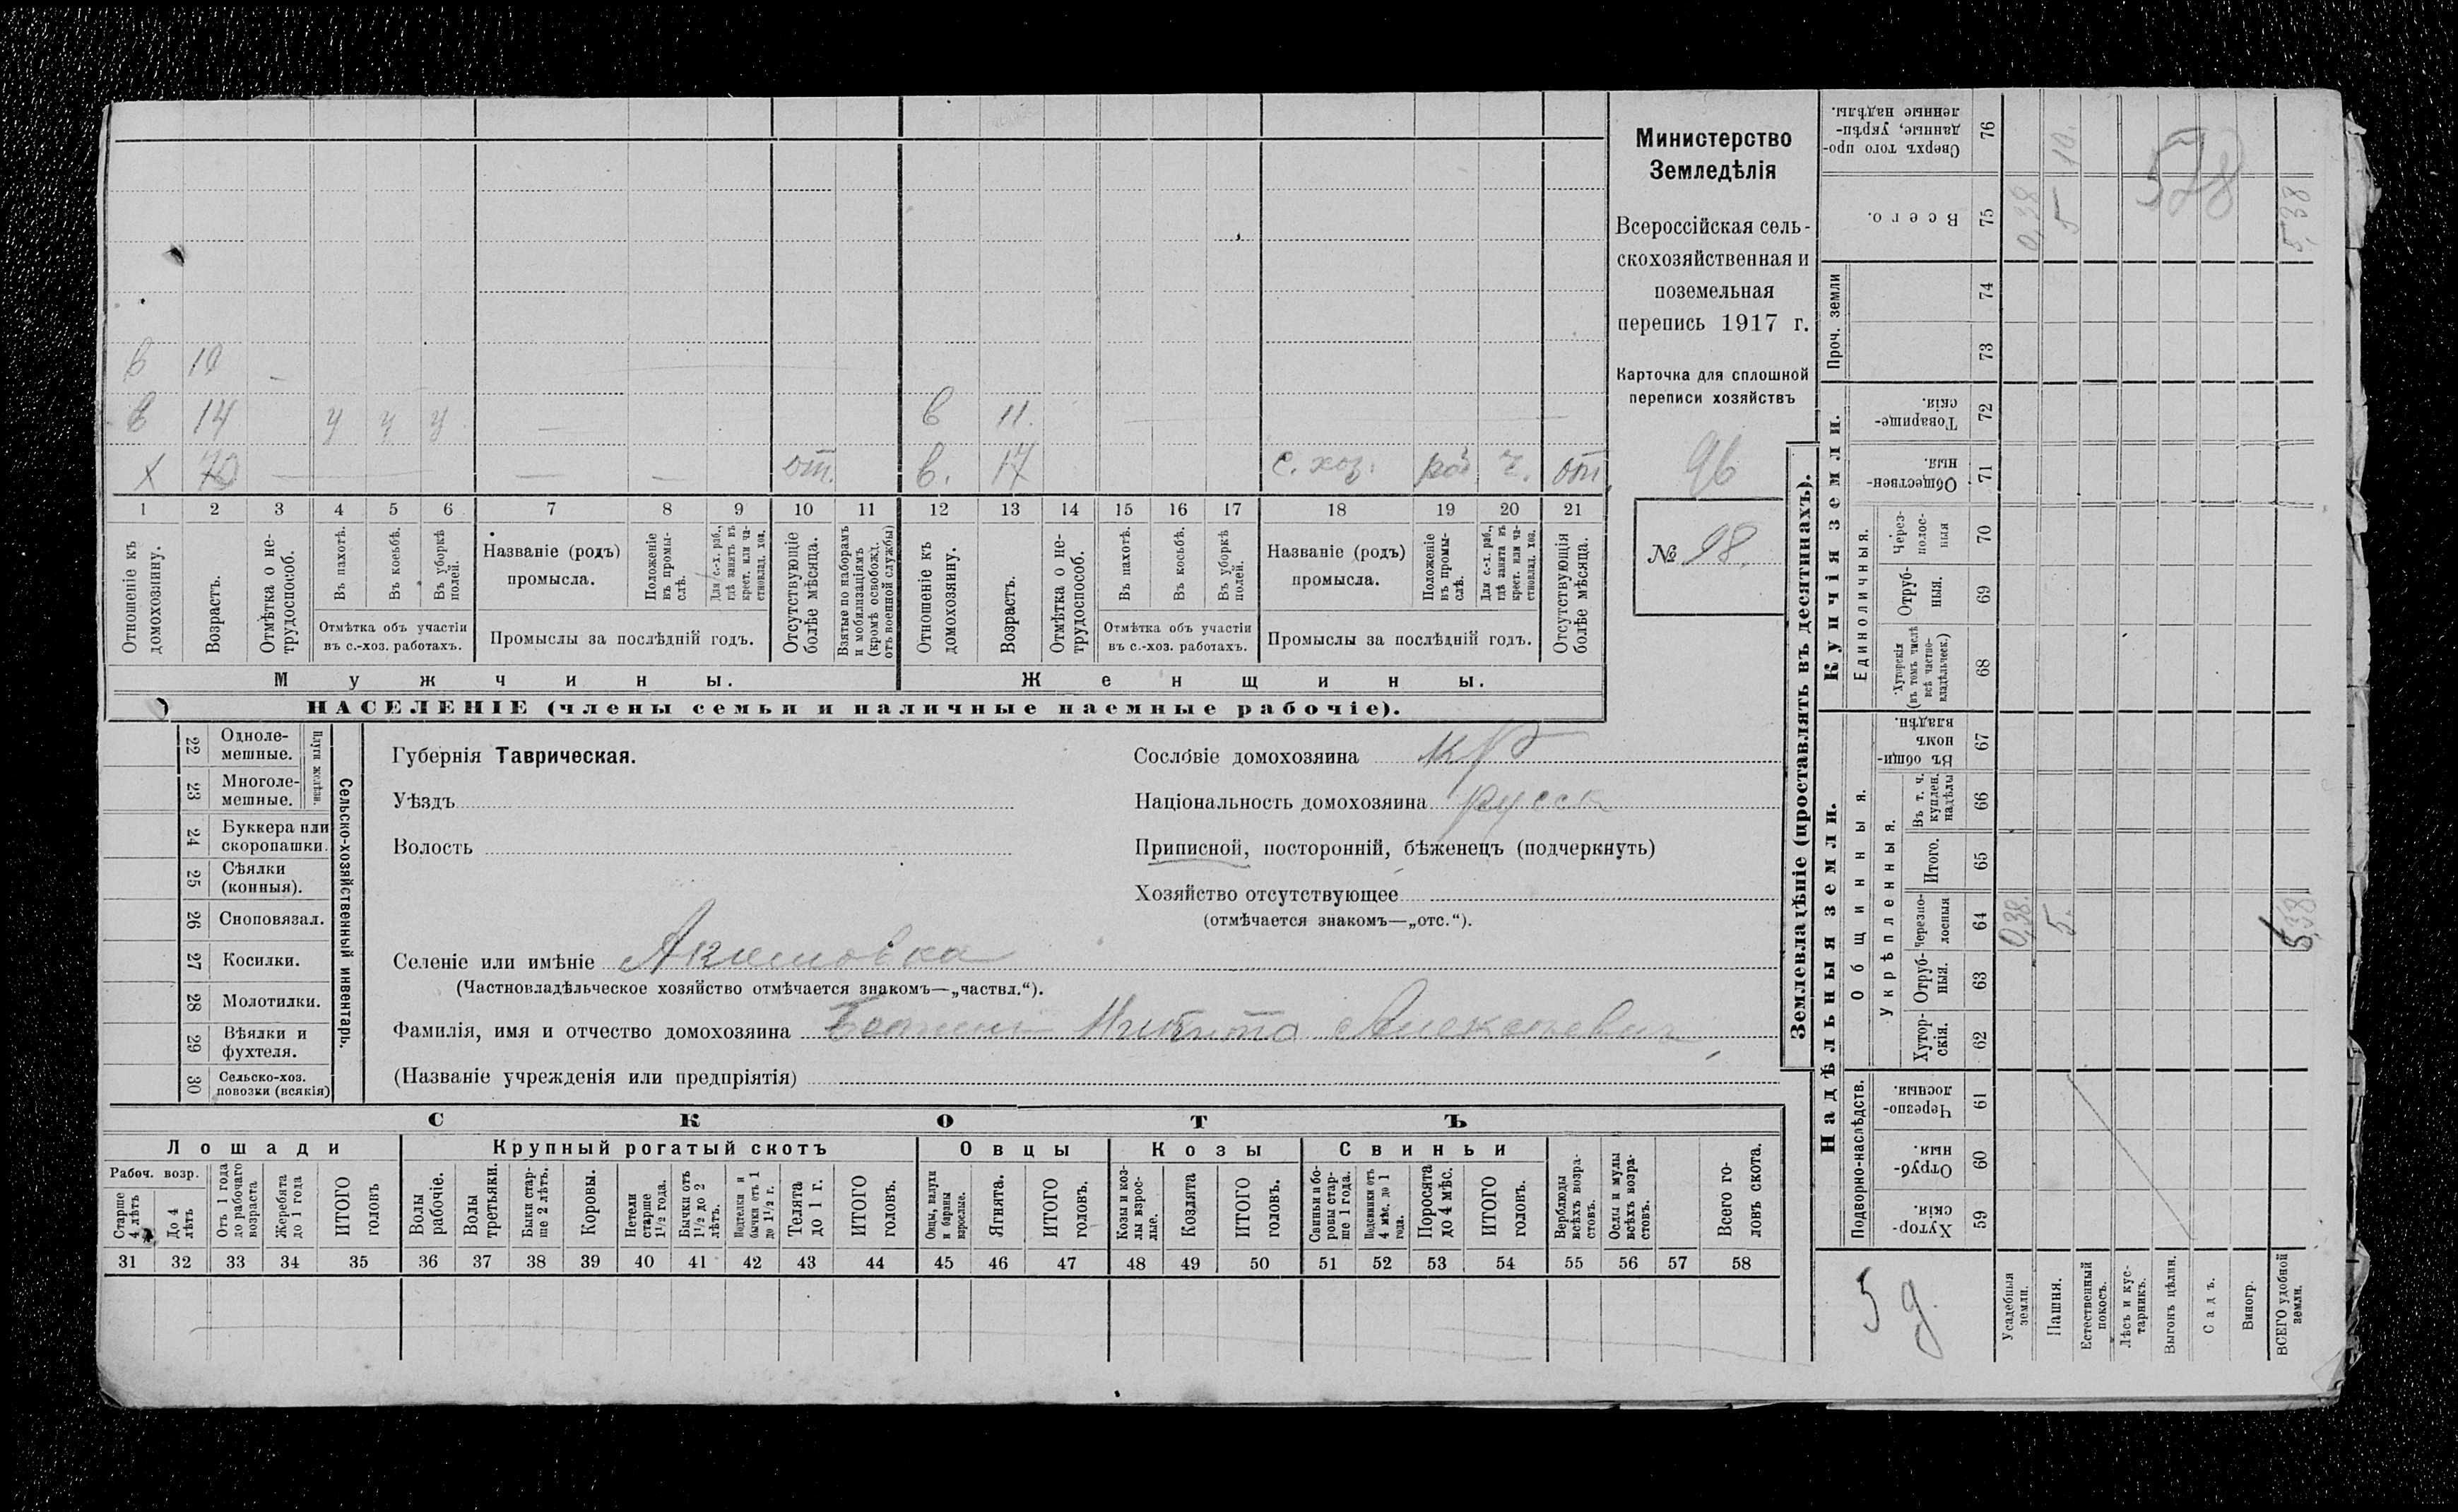 в 10 –
в 14 у у у – в 11.
х 70 – – – от. в. 17 с. хоз. раб. ч. от.
1 2 3 4 5 6 7 8 9 10 11 12 13 14 15 16 17 18 19 20 21
Отношеніе къ домохозяину.
Возрастъ.
Отмѣтка о не-
трудоспособ.
Въ пахотѣ.
Въ косьбѣ.
Въ уборкѣ
полей.
Отмѣтка объ участіи
въ с.-хоз. работахъ.
Названіе (родъ)
промысла.
Положеніе
въ промы-
слѣ.
Для с.-х. раб.,
гдѣ занятъ въ
крест. или ча-
стновлад. хоз.
Промыслы за послѣдній годъ.
Отсутствующіе
болѣе мѣсяца.
Взятые по наборамъ
и мобилизаціямъ
(кромѣ освобожд.
отъ военной службы)
Отношеніе къ
домохозяину.
Возрастъ.
Отмѣтка о не-
трудоспособ.
Въ пахотѣ.
Въ косьбѣ.
Въ уборкѣ
полей.
Отмѣтка объ участіи
въ с.-хоз. работахъ.
Названіе (родъ)
промысла.
Положеніе
въ промы-
слѣ.
Для с.-х. раб.,
гдѣ занята въ
крест. или ча-
стновлад. хоз.
Промыслы за послѣдній годъ.
Отсутствующія
болѣе мѣсяца.
Мужчины.
Женщины.
НАСЕЛЕНІЕ (члены семьи и наличные наемные рабочіе).
Министерство
Земледѣлія
Всероссійская сель-
скохозяйственная и
поземельная
перепись 1917 г.
Карточка для сплошной
переписи хозяйствъ
96
№ 98.
22 Одноле-
мешные.
23 Многоле-
мешные.
Плуги желѣзн.
24 Буккера или
скоропашки.
25 Сѣялки
(конныя).
26 Сноповязал.
27 Косилки.
28 Молотилки.
29 Вѣялки и
фухтеля.
30 Сельско-хоз.
повозки (всякія)
Сельско-хозяйственный инвентарь.
Губернія Таврическая.
Уѣздъ
Волость
Сословіе домохозяина кр
Національность домохозяина русск
Приписной, посторонній, бѣженецъ (подчеркнуть)
Хозяйство отсутствующее
(отмѣчается знакомъ—„отс.“).
Селеніе или имѣніе Акимовка
(Частновладѣльческое хозяйство отмѣчается знакомъ—„частвл.“).
Фамилія, имя и отчество домохозяина Никита Алексѣевич
(Названіе учрежденія или предпріятія)
СКОТЪ
Лошади
Крупный рогатый скотъ
Овцы
Козы
Свиньи
Рабоч. возр.
Старше
4 лѣтъ
До 4
лѣтъ
Отъ 1 года
до рабочаго
возраста
Жеребята
до 1 года
ИТОГО
головъ
Волы
рабочіе.
Волы
третьяки.
Быки стар-
ше 2 лѣтъ.
Коровы.
Нетели
старше
1½ года.
Бычки отъ
1½ до 2
лѣтъ.
Подтелки и
бычки отъ 1
до 1½ г.
Телята
до 1 г.
ИТОГО
головъ.
Овцы, валухи
и бараны
взрослые.
Ягнята.
ИТОГО
головъ.
Козы и коз-
лы взрос-
лые.
Козлята
ИТОГО
головъ.
Свиньи и бо-
ровы стар-
ше 1 года.
Подсвинки отъ
4 мѣс. до 1
года.
Поросята
до 4 мѣс.
ИТОГО
головъ.
Верблюды
всѣхъ возра-
стовъ.
Ослы и мулы
всѣхъ возра-
стовъ.
Всего го-
ловъ скота.
31 32 33 34 35 36 37 38 39 40 41 42 43 44 45 46 47 48 49 50 51 52 53 54 55 56 57 58
Землевладѣніе (проставлять въ десятинахъ).
Надѣльныя земли.
Купчія земли.
Проч. земли
Подворно-наслѣдств.
Общинныя.
Укрѣпленныя.
Единоличныя.
Сверхъ того про-
данные, укрѣп-
ленные надѣлы. 76 10.
Всего. 75 0,38 5 5,38
578
74
73
Товарище-
скія. 72
Обществен-
ныя. 71
Через-
полос-
ныя 70
Отруб-
ныя. 69
Хуторскія
(въ томъ числѣ
всѣ частно-
владѣльческ.) 68
Въ общи-
номъ
владѣн. 67
Въ т. ч.
куплен.
надѣлы 66
Итого. 65
Черезпо-
лосныя 64 0,38. 5. 5,38
Отруб-
ныя. 63
Хутор-
скія. 62
Черезпо-
лосныя. 61
Отруб-
ныя. 60
Хутор-
скія. 59
5 д.
Усадебныя
земли.
Пашня.
Естественный
покосъ.
Лѣсъ и кус-
тарникъ.
Выгонъ цѣлин.
Садъ.
Виногр.
ВСЕГО удобной
земли.